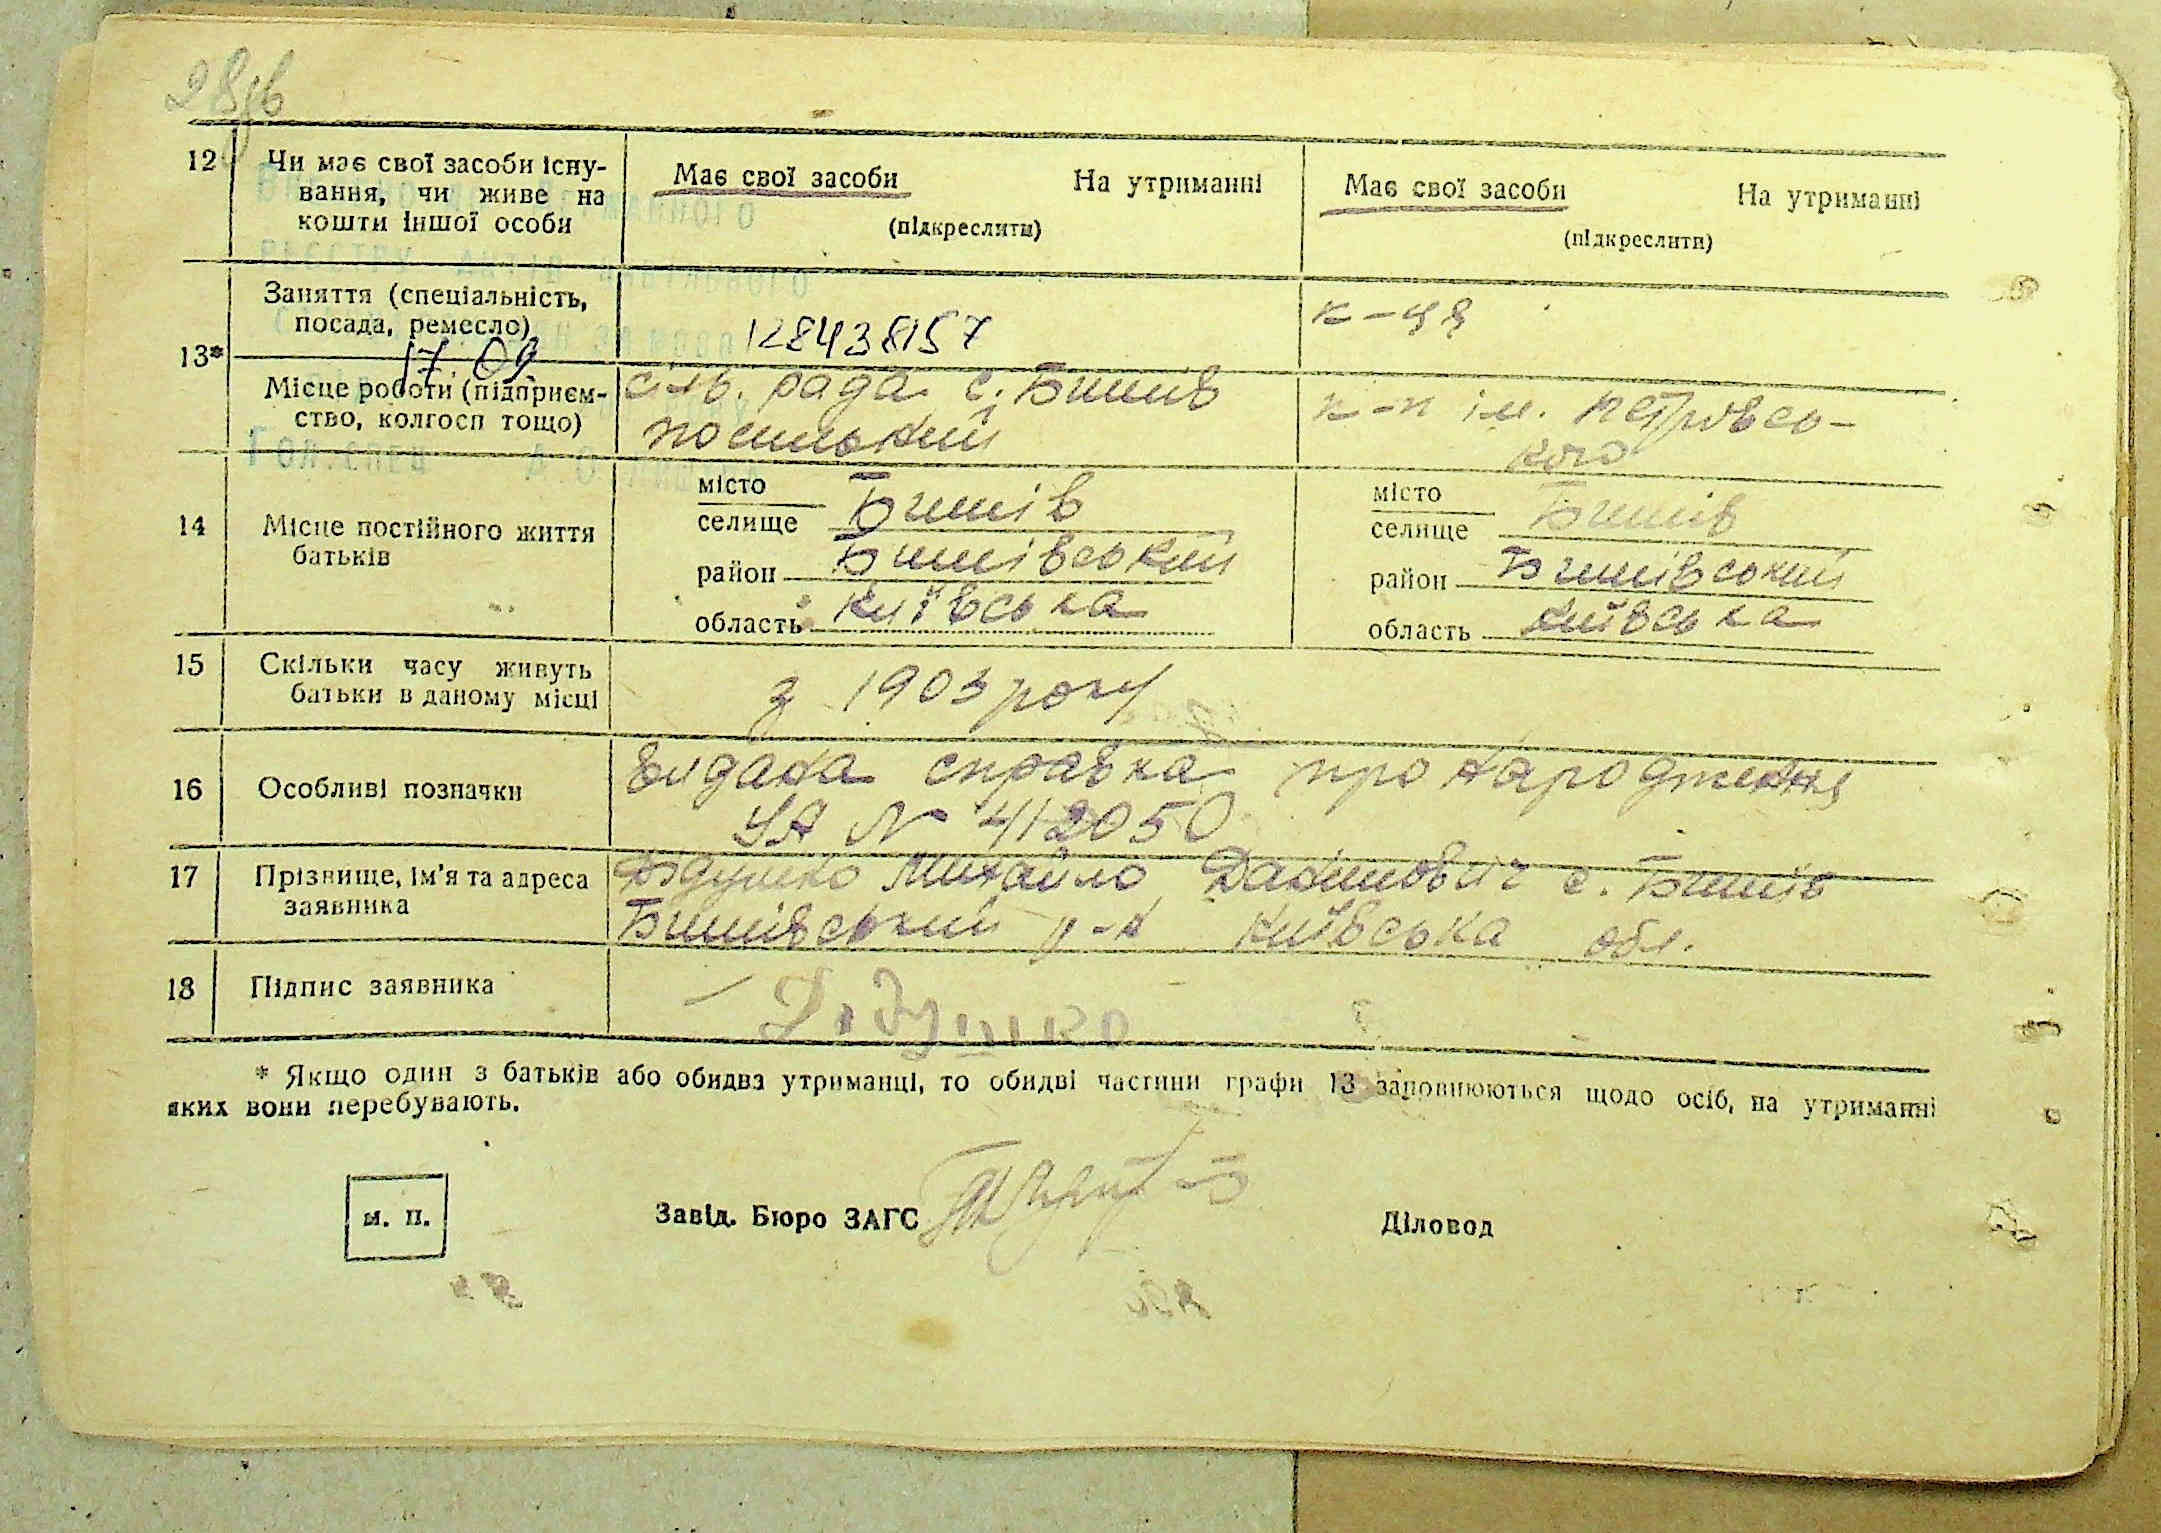 28зв
12 Чи має свої засоби існу- Має свої засоби На утриманні Має свої засоби На утриманні
вання, чи живе на
кошти іншої особи (підкреслити) (підкреслити)
Заняття (спеціальність, к-ця
посада, ремесло) 128438157
13* 17.09
Місце роботи (підприєм- сіль. рада с. Бишів к-п ім. Петровсь-
ство, колгосп тощо) посильний кого
місто місто
14 Місце постійного життя селище Бишів селище Бишів
батьків район Бишівський район Бишівський
область Київська область Київська
15 Скільки часу живуть
батьки в даному місці з 1903 року
16 Особливі позначки Видана справка про народження
УА № 412050
17 Прізвище, ім'я та адреса Дідушко Михайло с. Бишів
заявника Бишівський р-н Київська обл.
18 Підпис заявника Дідушко
* Якщо один з батьків або обидва утриманці, то обидві частини графи 13 заповнюються щодо осіб, на утриманні
яких вони перебувають.
м. п. Завід. Бюро ЗАГС Діловод